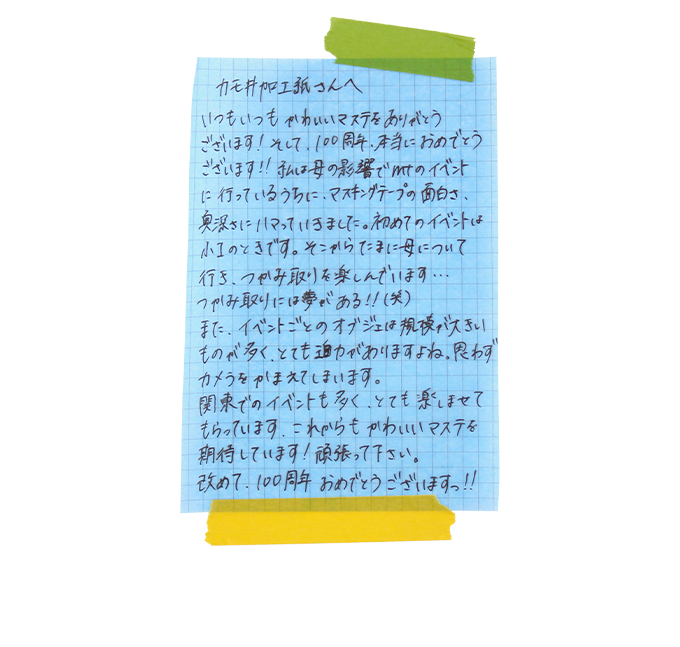 カモ井加工紙さんへ
いつもいつもかわいいマステをありがとう
ございます！そして、100周年、本当におめでとう
ございます!! 私は母の影響でmtのイベント
に行っているうちに、マスキングテープの面白さ、
奥深さにハマっていきました。初めてのイベントは
小1のときです。そこからたまに母について
行き、つかみ取りを楽しんでいます…
つかみ取りには夢がある!!(笑)
また、イベントごとのオブジェは規模が大きい
ものが多く、とても迫力がありますよね。思わず
カメラをかまえてしまいます。
関東でのイベントも多く、とても楽しませて
もらっています、これからもかわいいマステを
期待しています！頑張って下さい。
改めて、100周年おめでとうございますっ!!